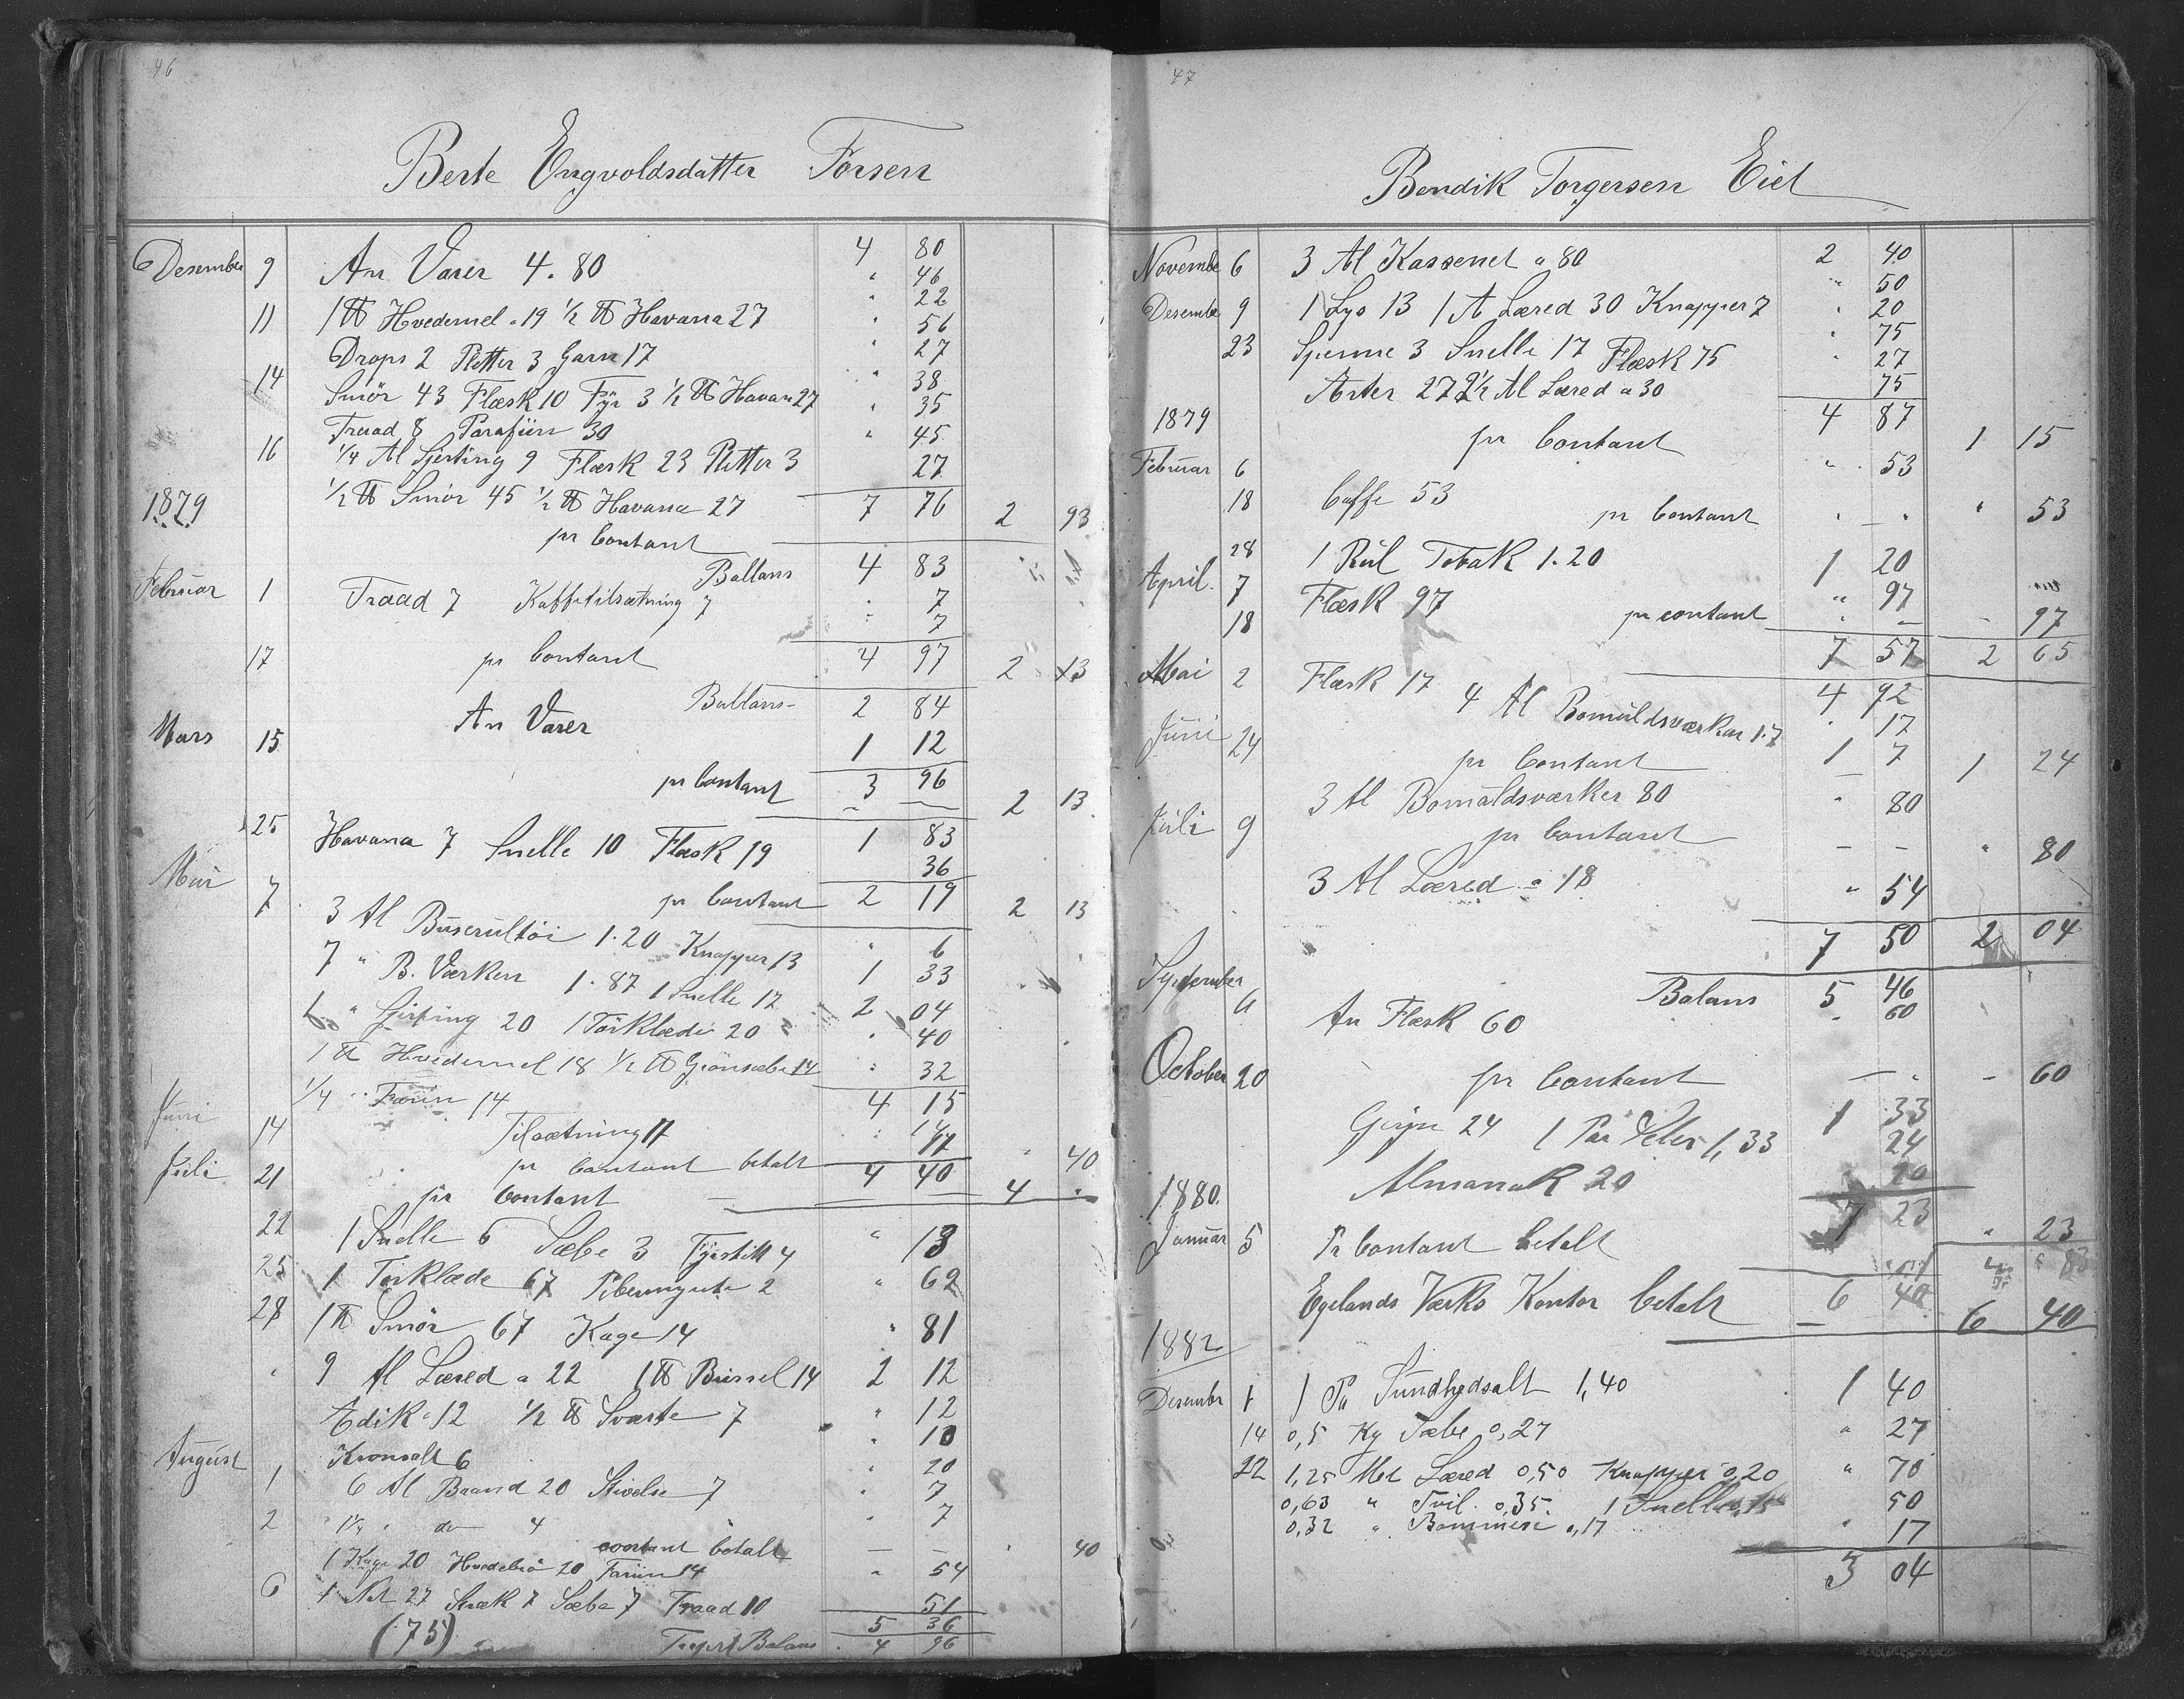 46
Berte Engvoldsdatter Forsen
Desember 9 An Varer 4.80 4 80
" 46
11 1 ℔ Hvedemel a 19 ½ ℔ Havana 27 " 22
Drops 2 Pletter 3 Garn 17 " 56
" 27
14 Smör 43 Flæsk 10 Fyr 3 ½ ℔ Havan 27 " 38
Traad 8 Parafiin 30 " 35
16 ¼ Al Sjerting 9 Flæsk 23 Pletter 3 " 45
½ ℔ Smör 45 ½ ℔ Havana 27 27
1879 pr Contant 7 76 2 93
Ballans 4 83
Februar 1 Traad 7 Kaffetilsætning 7 " 7
" 7
17 pr Contant 4 97 2 13
Ballans 2 84
Mars 15 An Varer 1 12
pr Contant 3 96 2 13
25 Havana 7 Snelle 10 Flæsk 19 1 83
36
Mai 7 pr Contant 2 19 2 13
3 Al Buserultöi 1.20 Knapper 13 " 6
7 " B. Værken 1.87 1 Snelle 17 1 33
6 " Girping 20 1 Törklæde 20 2 04
" 40
1 ℔ Hvedemel 18 ½ ℔ Grönsæbe 14 " 32
¼ " Farin 14 4 15
Juni 14 Tilsætning 17 14
17
pr Contant betalt 4 40 " 40
Juli 21 pr Contant 4 "
22 1 Snelle 6 Sæbe 3 Fyrstikk 4 " 13
25 1 Törklæde 67 Pibemynte 2 " 69
28 1 ℔ Smör 67 Kage 14 " 81
" 9 Al Læred a 22 1 ℔ Brissel 14 2 12
Edik 12 ½ ℔ Sværte 7 " 12
Kronsalt 6 " 13
August 1 6 Al Baand 20 Stivelse 7 " 20
" 7
2 " 1¼ " do 4 " 7
contant betalt — — " 40
1 Kage 20 Hvedebrö 20 Farin 14 " 54
6 1 Not 27 Snæk 7 Sæbe 7 Traad 10 51
(75) 5 36
Balans 4 96
47
Bendik Torgersen Eiet
November 6 3 Al Kassenet a 80 2 40
" 50
Desember 9 1 Lys 13 1 A Læred 30 Knapper 7 " 20
23 Spenne 3 Snelle 17 Flæsk 75 " 75
" 27
Arter 27 2½ Al Læred a 30 75
1879 pr Contant 4 87 1 15
Februar 6 Caffe 53 " 53
18 pr Contant " — " " 53
28 1 Rul Tobak 1.20 1 20
April 7 Flæsk 97 " 97
18 pr contant " — - 97
7 57 2 65
Mai 2 Flæsk 17 4 Al Bomuldsværken 1.7 4 92
" 17
1 7
Juni 24 pr Contant — 1 24
3 Al Bomuldsværker 80 " 80
Juli 9 pr Contant — — " 80
3 Al Læred a 18 " 54
7 50 2 04
Balans 5 46
September 4 An Flæsk 60 " 60
October 20 pr Contant — " - 60
Girpn 24 1 Par Seler 1,33 1 33
24
Almanak 20 20
1880. 7 23
Januar 5 Pr Contant betalt " 23
" 83
Egelands Værks Kontor betalt 6 40 6 40
1882
Desember 1 1 Pa Sundhedsalt 1,40 1 40
14 0,5 Kg Sæbe 0,27 " 27
22 1,25 Met Læred 0,50 Knapper 0,20 " 70
0,63 " Tvil. 0,35 1 Snelle 0,15 50
0,32 " Bommesi 0,17 " 17
3 04